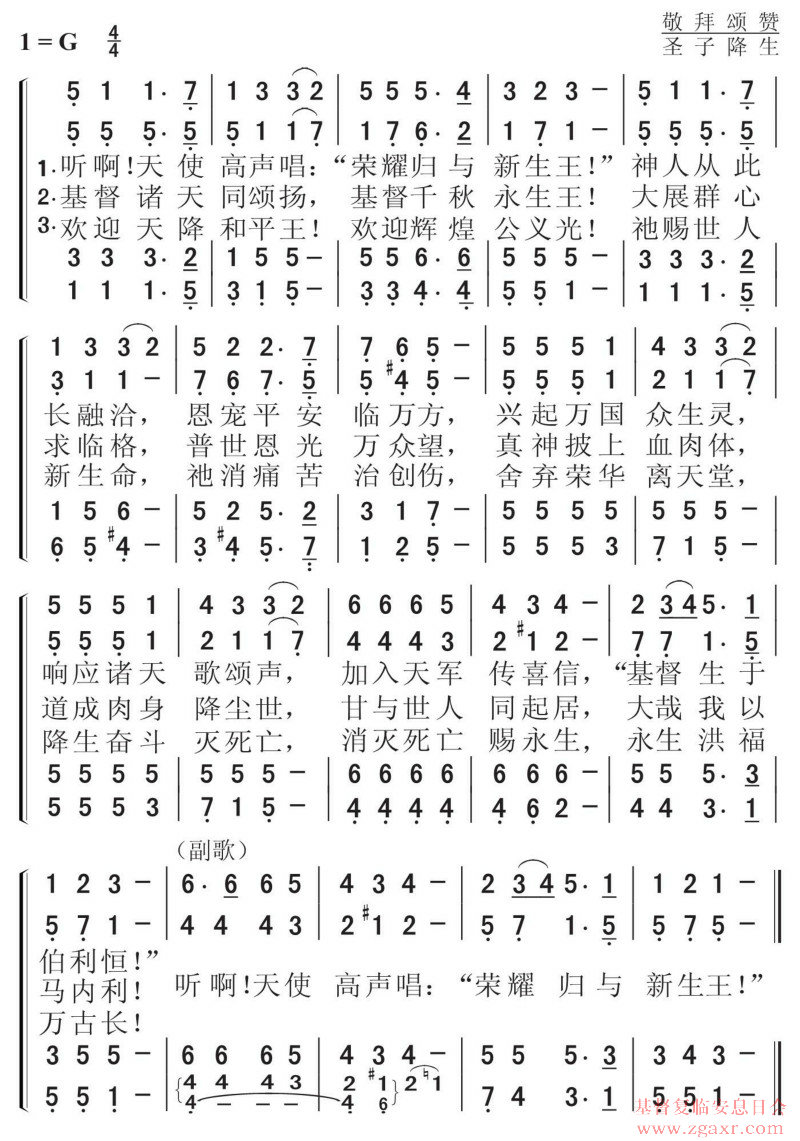 1=G 4/4
敬拜颂赞
圣子降生
5 1 1· 7 | 1 3 3 2 | 5 5 5· 4 | 3 2 3 – | 5 1 1· 7
5 5 5· 5 | 5 1 1 7 | 1 7 6· 2 | 1 7 1 – | 5 5 5· 5
1·听啊!天使 高声唱:“荣耀归与 新生王!”神人从此
2·基督诸天同颂扬, 基督千秋 永生王! 大展群心
3·欢迎 天降 和平王! 欢迎辉煌 公义光! 祂赐世人
3 3 3· 2 | 1 5 5 – | 5 5 6· 6 | 5 5 5 – | 3 3 3· 2
1 1 1· 5 | 3 1 5 – | 3 3 4· 4 | 5 5 1 – | 1 1 1· 5
1 3 3 2 | 5 2 2· 7 | 7 6 5 – | 5 5 5 1 | 4 3 3 2
3 1 1 – | 7 6 7· 5 | 5 #4 5 – | 5 5 5 1 | 2 1 1 7
长融洽, 恩宠平安 临万方, 兴起万国 众生灵,
求临格, 普世恩光 万众望, 真神披上 血肉体,
新生命, 祂消痛苦 治创伤, 舍弃荣华 离天堂,
1 5 6 – | 5 2 5· 2 | 3 1 7 – | 5 5 5 5 | 5 5 5 –
6 5 #4 – | 3 #4 5· 7 | 1 2 5 – | 5 5 5 3 | 7 1 5 –
5 5 5 1 | 4 3 3 2 | 6 6 6 5 | 4 3 4 – | 2 3 4 5· 1
5 5 5 1 | 2 1 1 7 | 4 4 4 3 | 2 #1 2 – | 7 7 1· 5
响应诸天 歌颂声, 加入天军 传喜信,“基督生于
道成肉身 降尘世, 甘与世人 同起居, 大哉我以
降生奋斗 灭死亡, 消灭死亡 赐永生, 永生洪福
5 5 5 5 | 5 5 5 – | 6 6 6 6 | 6 6 6 – | 5 5 5· 3
5 5 5 3 | 7 1 5 – | 4 4 4 4 | 4 6 2 – | 4 4 3· 1
(副歌)
1 2 3 – | 6· 6 6 5 | 4 3 4 – | 2 3 4 5· 1 | 1 2 1 –
5 7 1 – | 4 4 4 3 | 2 #1 2 – | 5 7 1· 5 | 5 7 5 –
伯利恒!”
马内利! 听啊!天使 高声唱:“荣耀 归与 新生王!”
万古长!
3 5 5 – | 6 6 6 5 | 4 3 4 – | 5 5 5· 3 | 3 4 3 –
5 5 1 – | 4 4 4 3 | 2 #1 2 ♮1 | 7 4 3· 1
4 – – | 4 6
基督复临安息日会
www.zgaxr.com